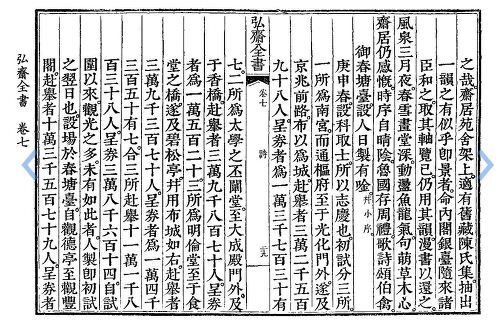 之哉齋居苑舍架上適有舊藏陳氏集抽出
一韻之有似乎卽景者命內閣銀臺隨來諸
臣和之取其軸覽已仍用其韻漫書以還之
風泉三月夜春雪畫堂深動盪魚龍氣句萌草木心
齋居仍感慨時序自晴陰魯國存周禮歌詩頌伯禽
御春塘臺設人日製有唫 幷小序
庚申春設科取士所以志慶也初試分三所
一所爲南宮而通樞府至于光化門外以逮
京兆前路布以爲城赴擧者三萬二千五百
九十八人呈券者一萬三千七百三十有
弘齋全書 卷七 詩 二九
七二所爲太學之丕闡堂至大成殿門外及
于香橋赴擧者三萬九千八百七十人呈券
者爲一萬五百二十三所爲明倫堂至于食
堂之橋遂及碧松亭幷用布城如右赴擧者
三萬九千三百七十人呈券者一萬四千
三百五十有七合三所赴擧十一萬一千八
百三十八人呈券三萬八千六百十四自試
圍以來觀光之多未有如此者人製卽初試
之翌日也設場於春塘臺自觀德亭至觀豐
閣赴擧者十萬三千五百七十九人呈券者
弘齋全書 卷七